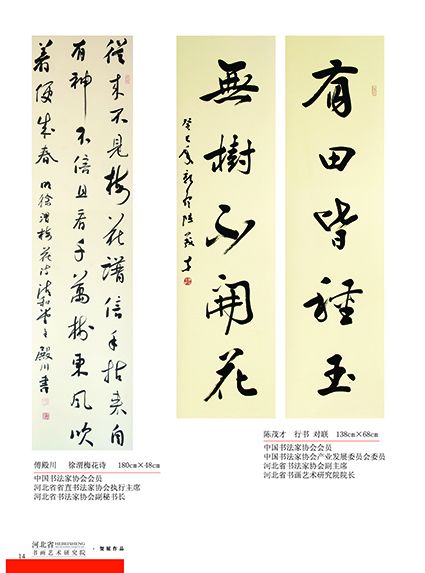 從来不見梅花譜信手拈来自
有神不信且看千萬樹東風吹
着便成春 明徐渭梅花诗
殿川書
有田皆種玉
無樹不開花
癸巳夏
傅殿川 徐渭梅花诗 180cm×48cm
中国书法家协会会员
河北省省直书法家协会执行主席
河北省书法家协会副秘书长
陈茂才 行书 对联 138cm×68cm
中国书法家协会会员
中国书法家协会产业发展委员会委员
河北省书法家协会副主席
河北省书画艺术研究院院长
14
河北省 HEBEISHENG
书画艺术研究院
·贺展作品